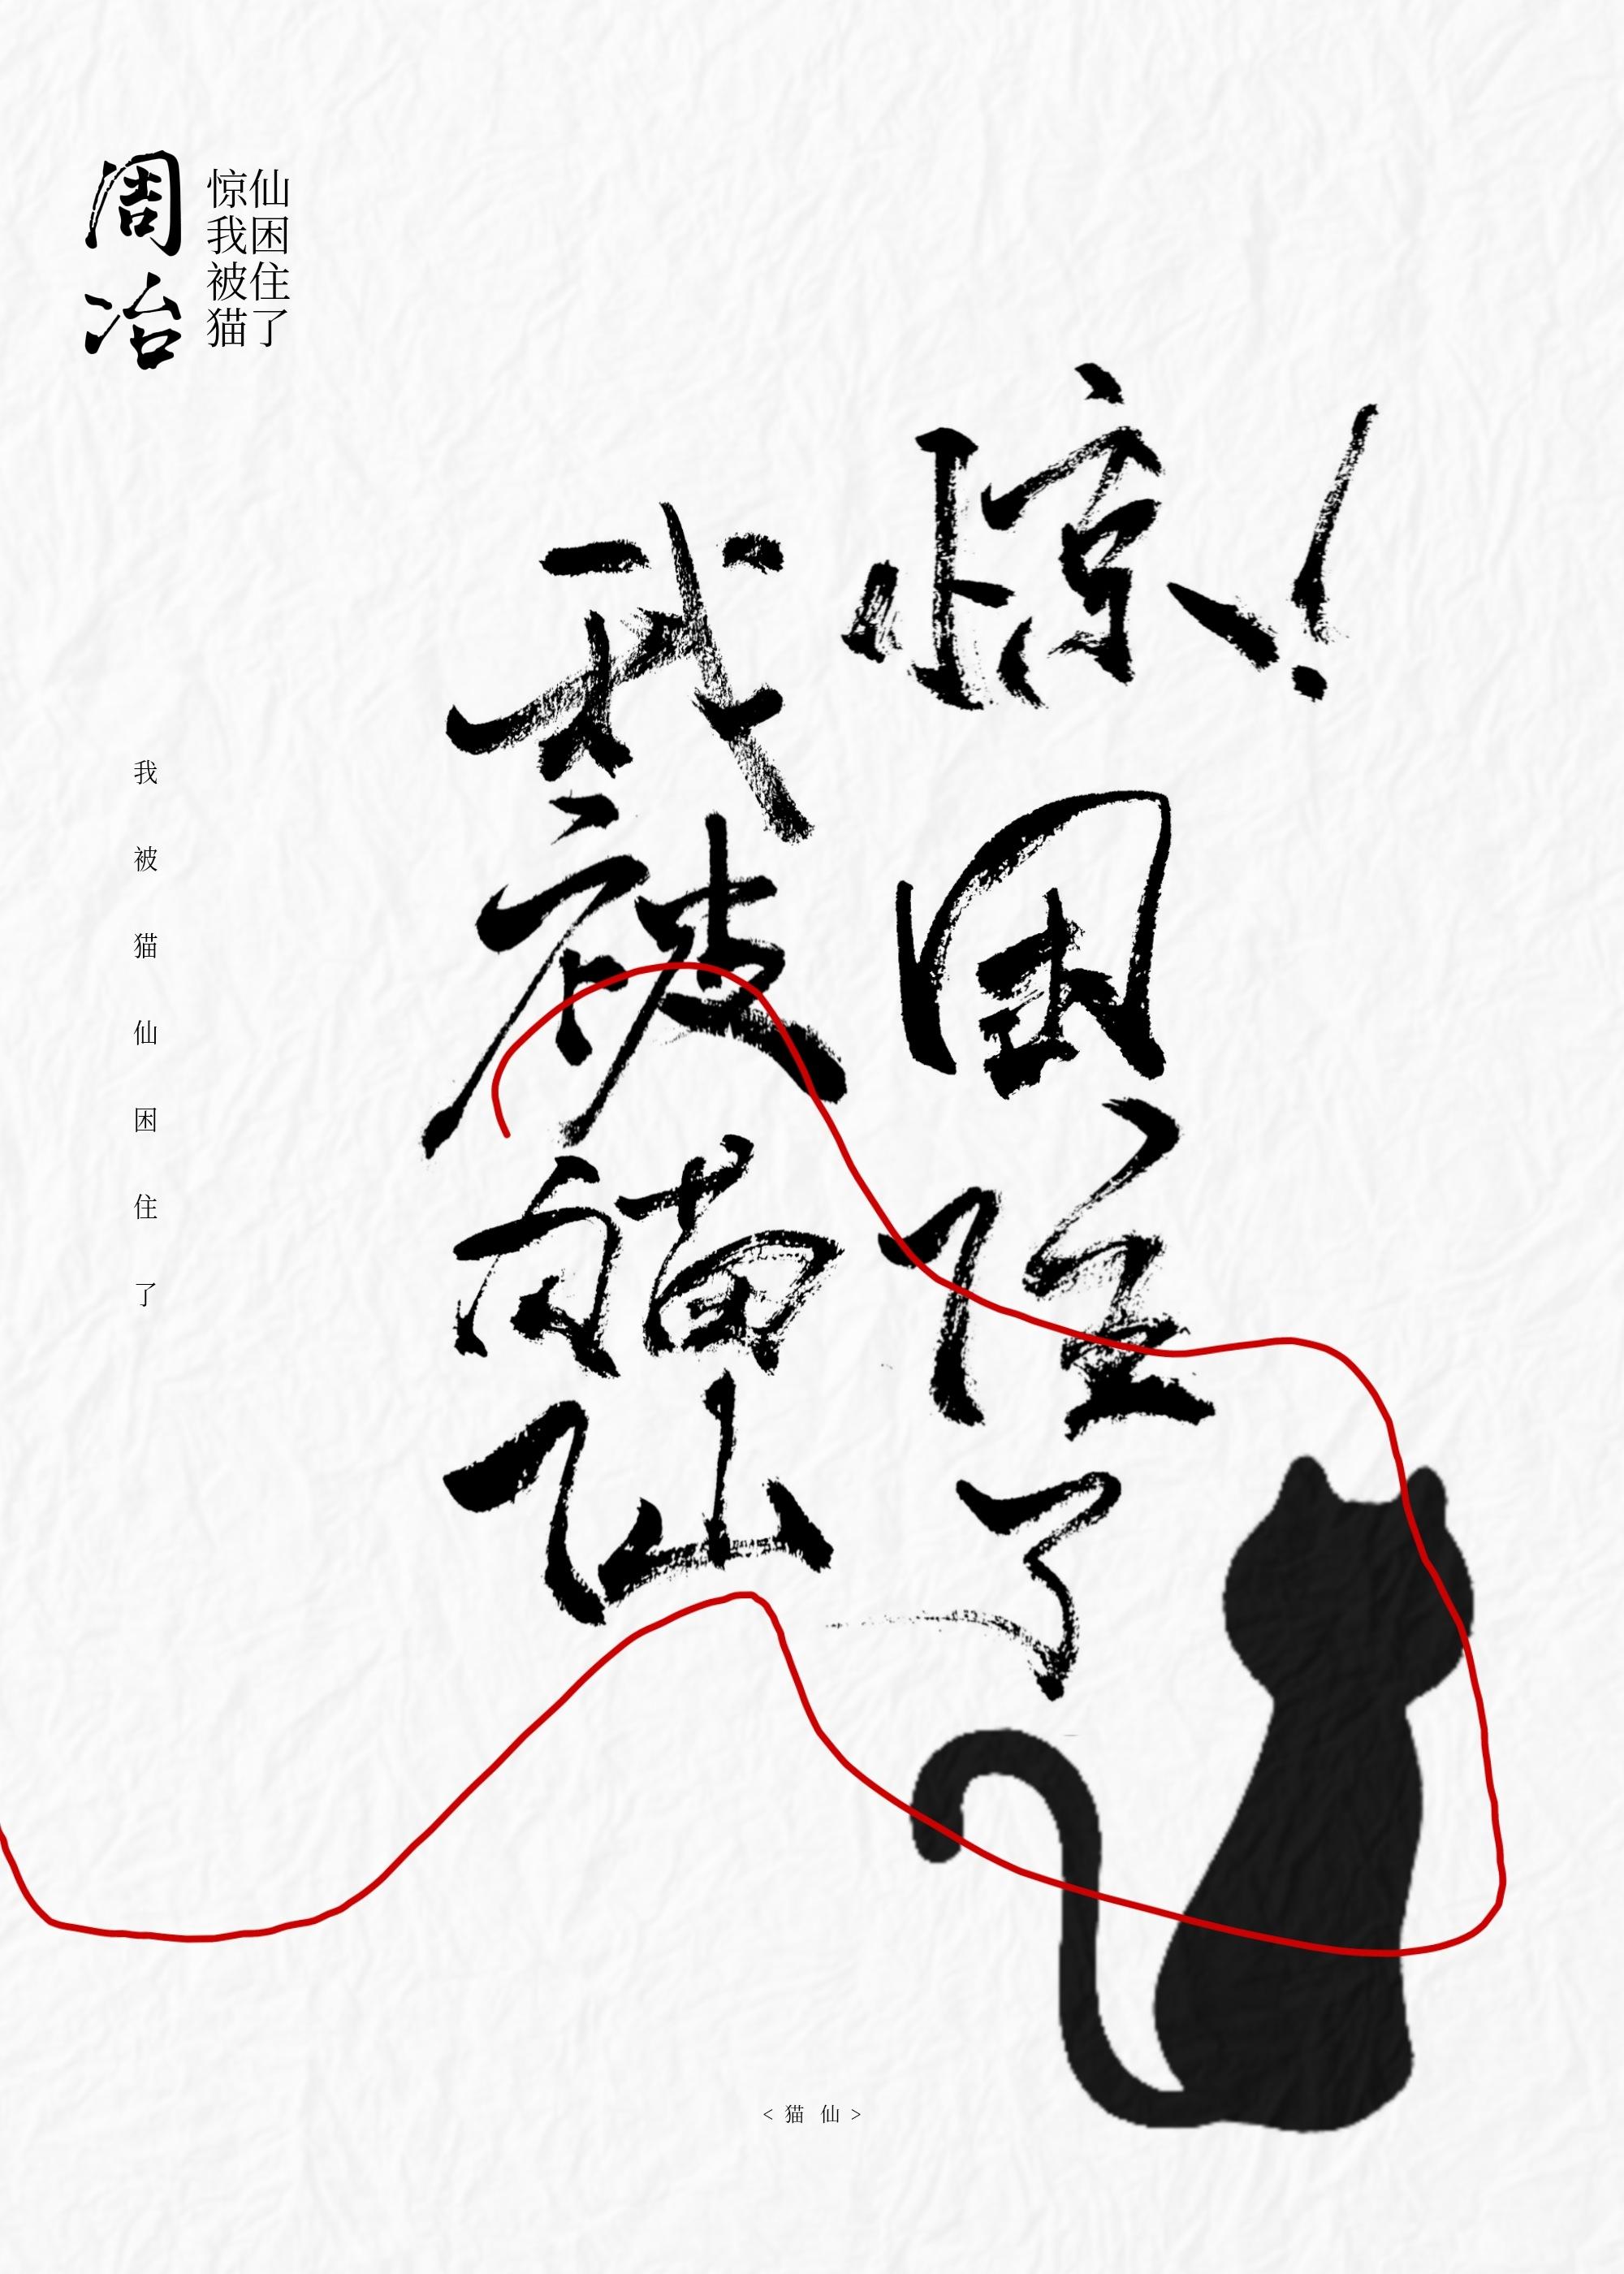 周冶
惊我被猫
仙困住了
惊！
我被猫仙
困住了
我被猫仙困住了
<猫仙>